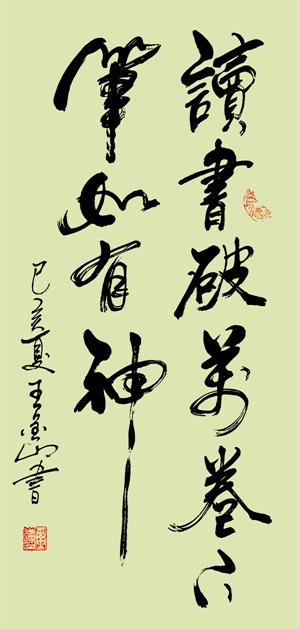 讀書破萬卷下
筆如有神
己亥夏王金山書